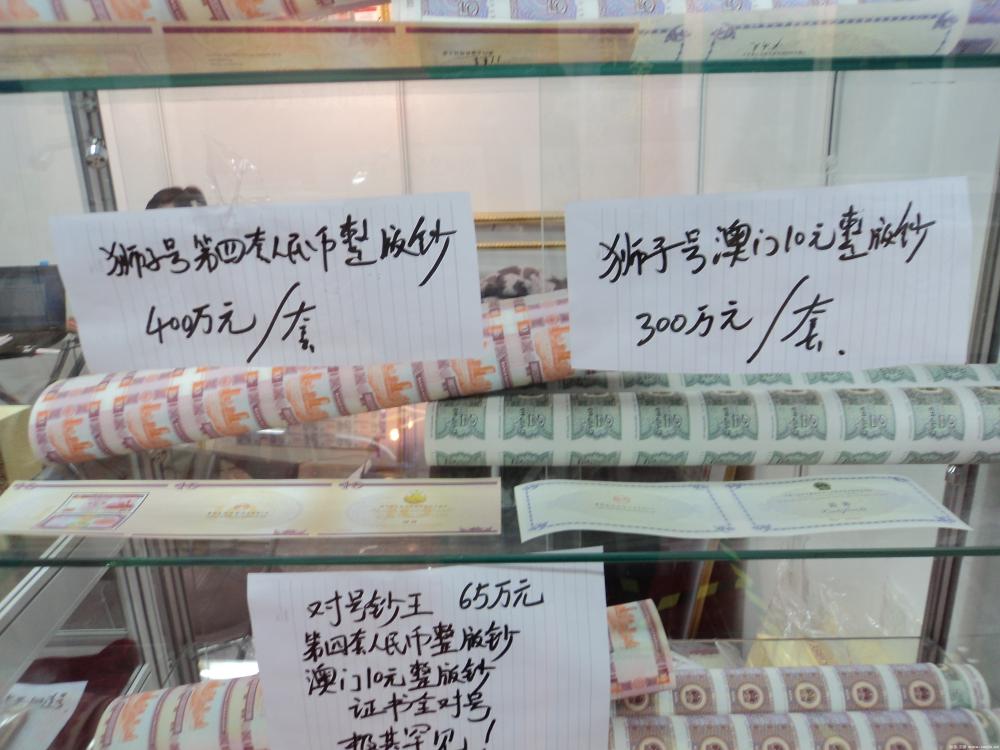 狮子号第四套人民币整版钞
400万元/套
狮子号澳门10元整版钞
300万元/套.
对号钞王 65万元
第四套人民币整版钞
澳门10元整版钞
证书全对号
极其罕见!